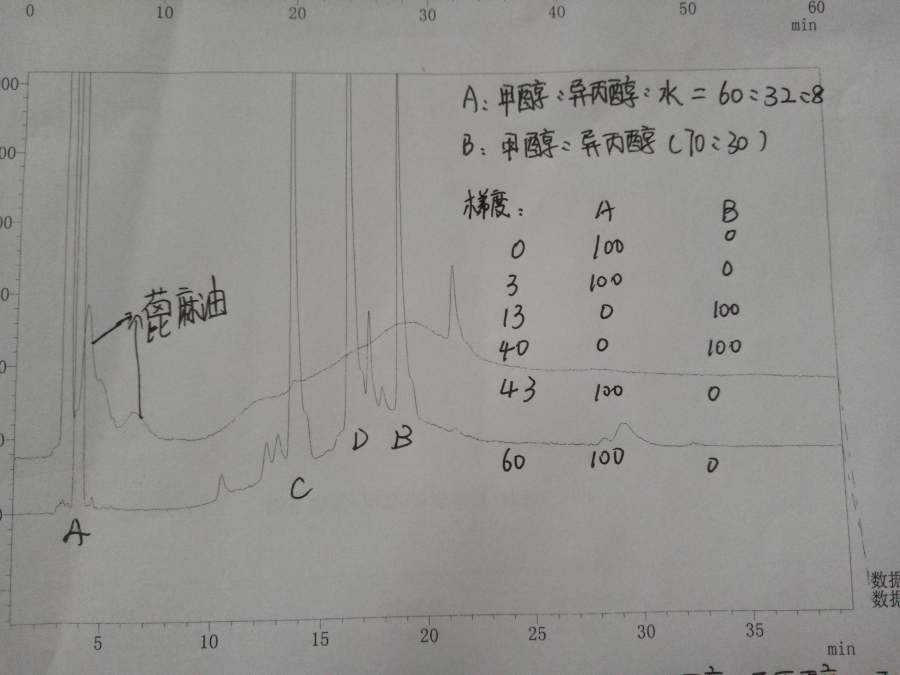 0 10 20 30 40 50 60
min
00
00
00
0
0
0
0
A: 甲醇:异丙醇:水=60:32:8
B: 甲醇:异丙醇(70:30)
梯度: A B
0 100 0
3 100 0
13 0 100
40 0 100
43 100 0
60 100 0
蓖麻油
A C D B
数据
数据
5 10 15 20 25 30 35
min